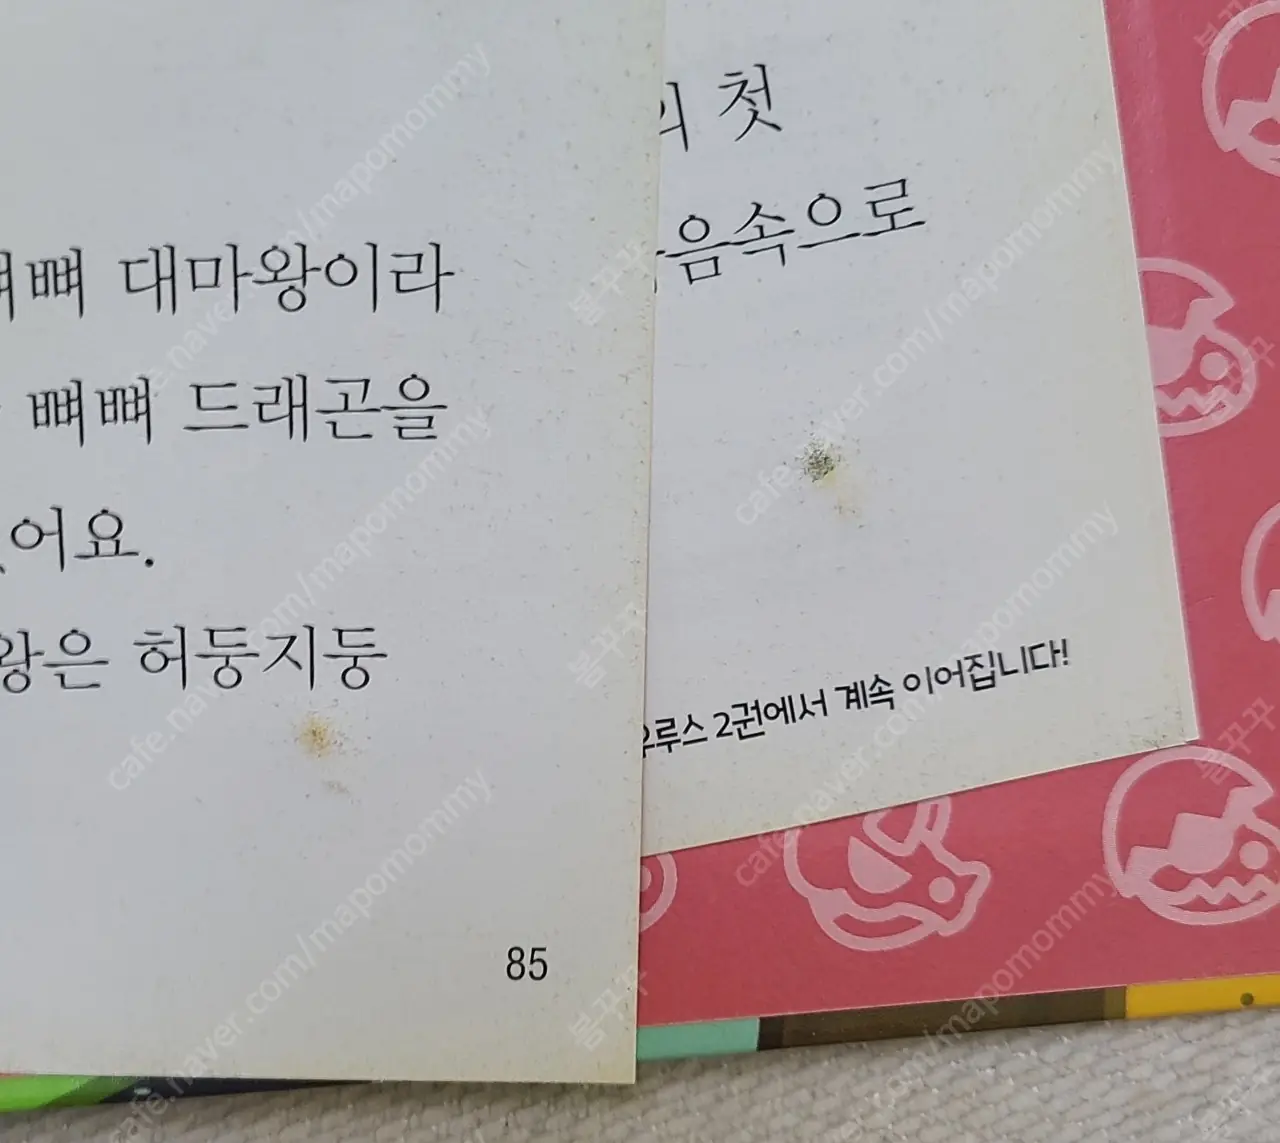 뼈 대마왕이라
뼈뼈 드래곤을
어요.
왕은 허둥지둥
85
의 첫
음속으로
루스 2권에서 계속 이어집니다!
cafe.naver.com/mapomommy
봄꾸꾸